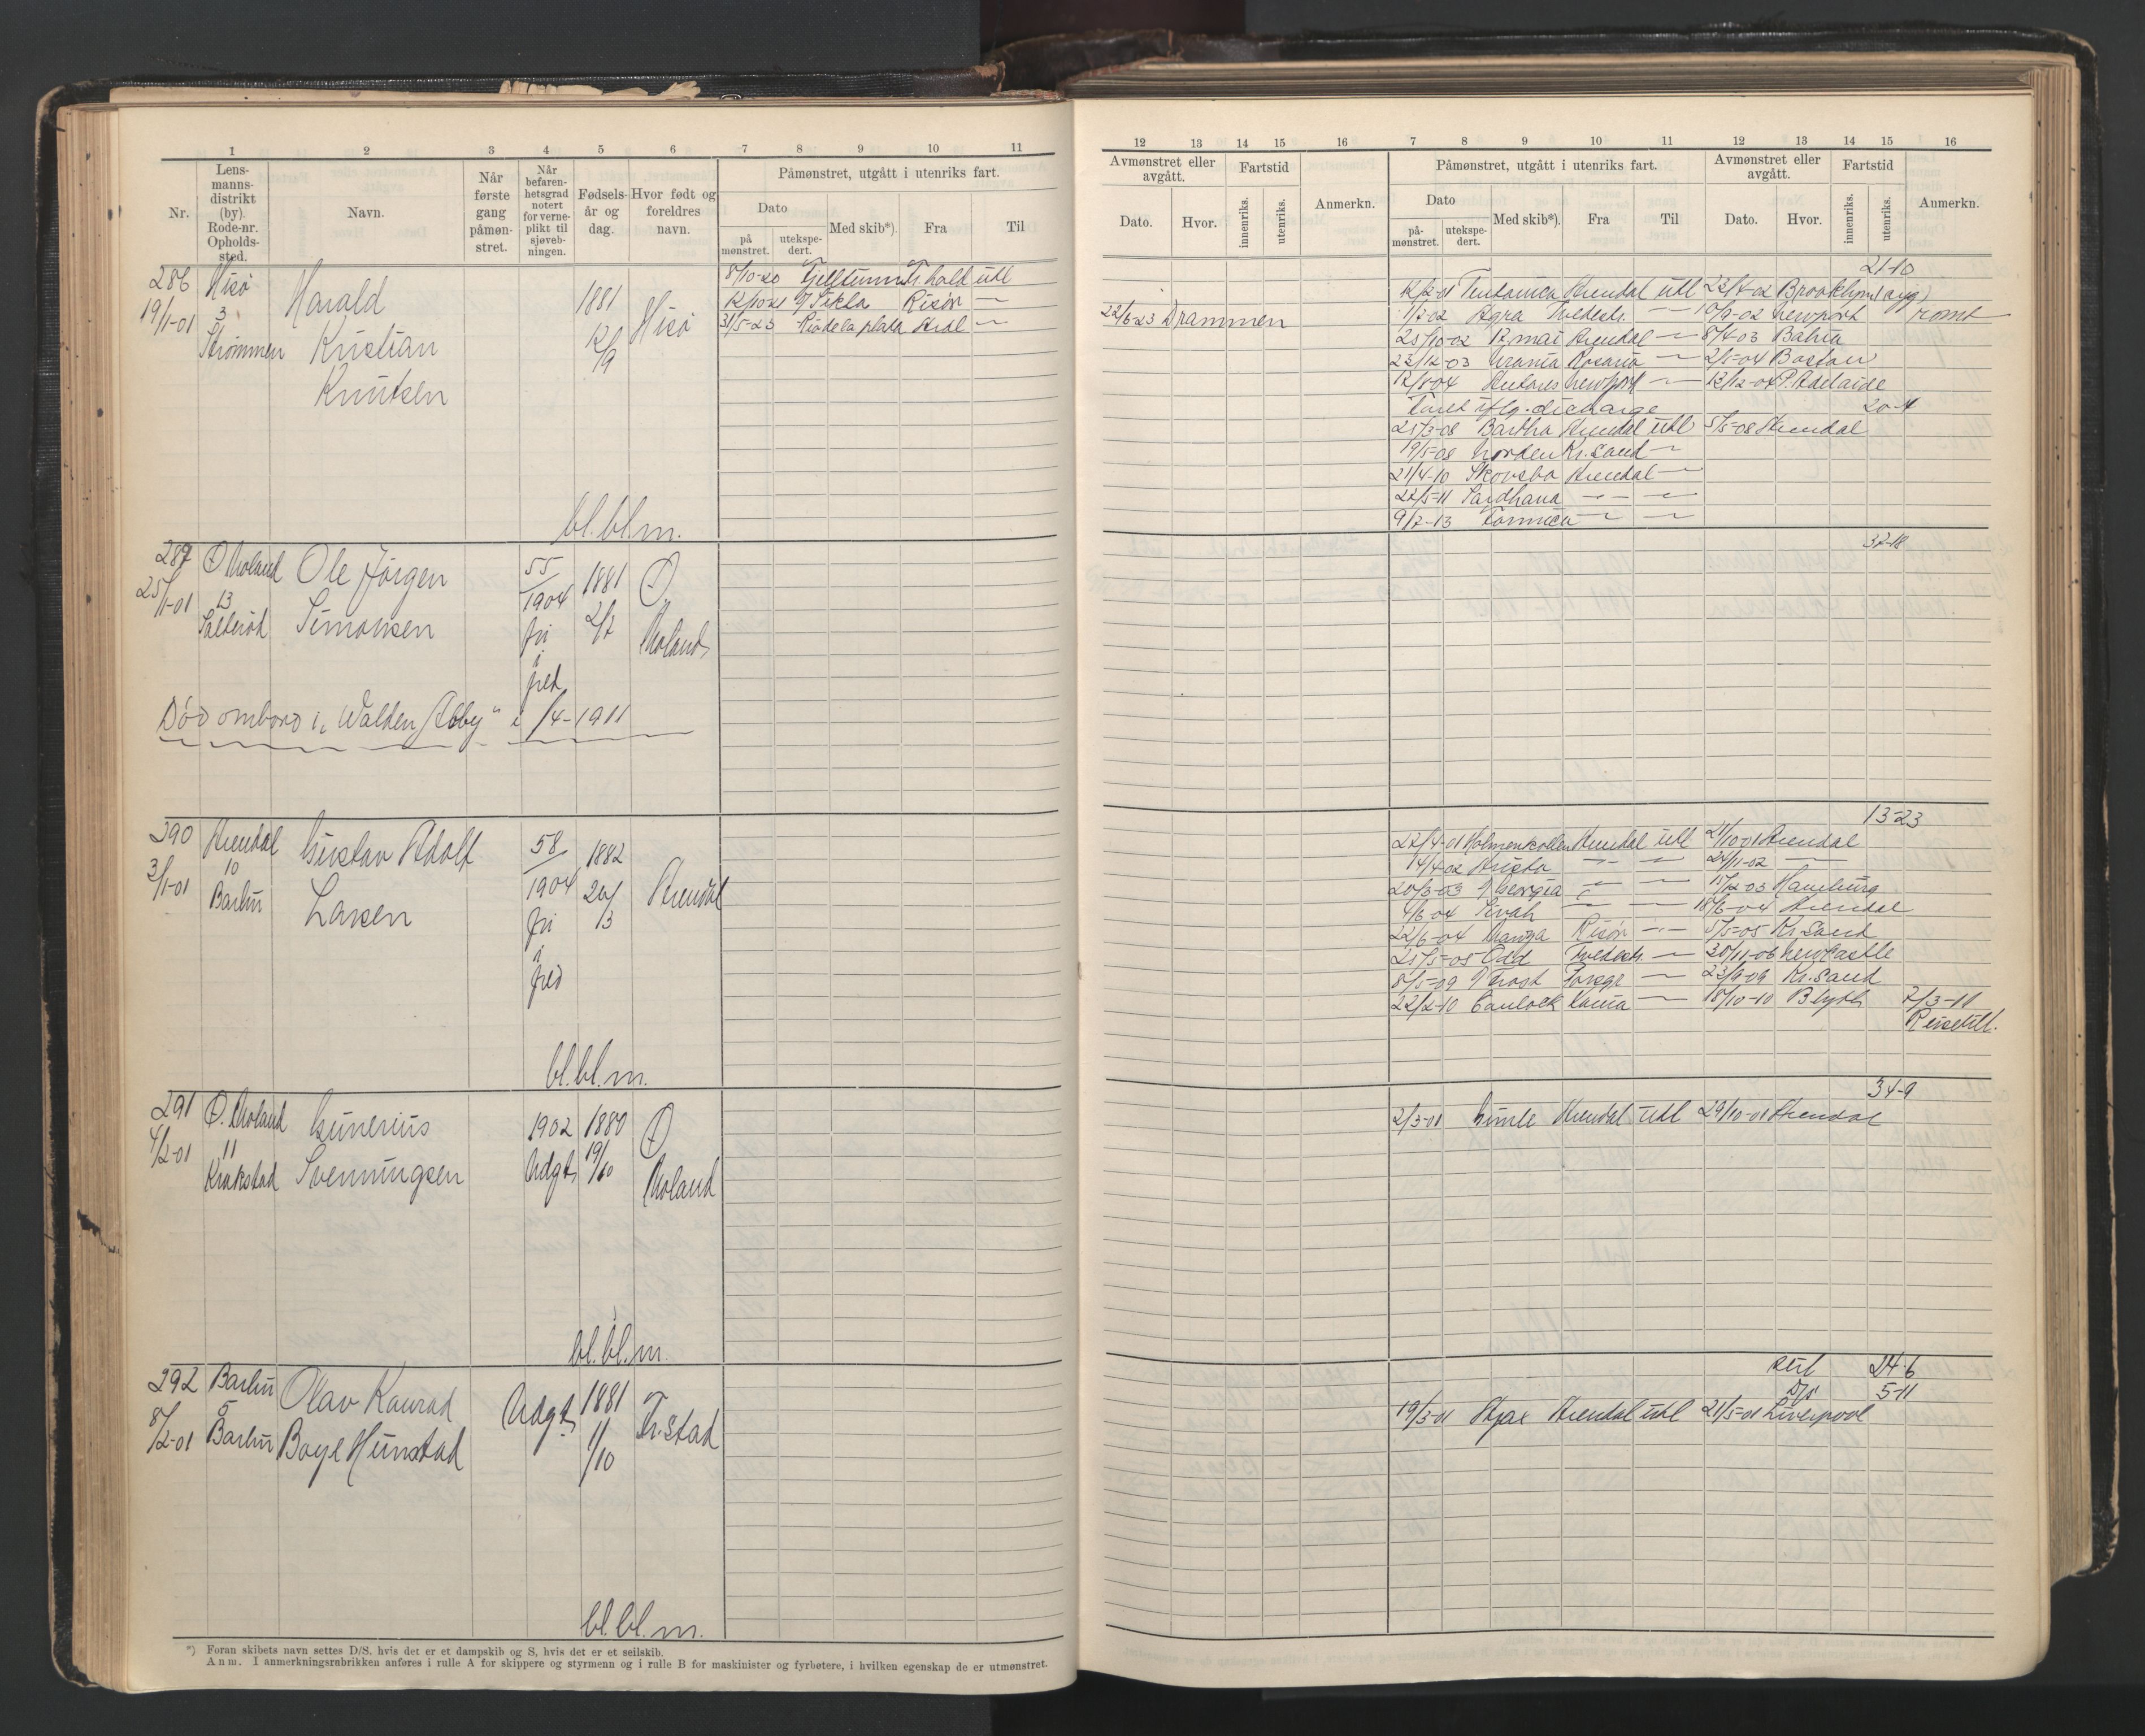 1 2 3 4 5 6 7 8 9 10 11
Nr.
Lens-
manns-
distrikt
(by).
Rode-nr.
Opholds-
sted.
Navn.
Når
første
gang
påmøn-
stret.
Når
befaren-
hetsgrad
notert
for verne-
plikt til
sjøveb-
ningen.
Fødsels-
år og
dag.
Hvor født og
foreldres
navn.
Påmønstret, utgått i utenriks fart.
Dato
på
mønstret.
utekspe-
dert.
Med skib*).
Fra
Til
286 Hisø Harald 1881 Hisø
19/1-01 3 Kristian 12/9
Strømmen Knutsen
8/10-20 Fr.hald utl
12/10 21 Risør —
31/5-23 Rio de la plata Ardl —
bl. bl. m.
287 Ø Moland Ole Jörgen 55/1904 1881 Ø
25/1-01 13 Simonsen fri 2/7 Moland
Salterød i
fred
Död ombord i „Walden Abby" i /4-1911
290 Arendal Gustav Adolf 58/1904 1882 Arendal
3/1-01 10 Larsen fri 20/3
Barbu i
fred
bl. bl. m.
291 Ø. Moland Gunerius 1902 1880 Ø
4/2-01 11 Svenningsen Udgt 19/10 Moland
Krokstad
bl. bl. m.
292 Barbu Olav Konrad Udgt 1881 Fr.stad
8/2-01 5 Boye Hunstad 11/10
Barbu
bl. bl. m.
*) Foran skibets navn settes D/S. hvis det er et dampskib og S, hvis det er et seilskib.
Anm. I anmerkningsrubrikken anføres i rulle A for skippere og styrmenn og i rulle B for maskinister og fyrbøtere, i hvilken egenskap de er utmønstret.
12 13 14 15 16 7 8 9 10 11 12 13 14 15 16
Avmønstret eller
avgått.
Dato.
Hvor.
Fartstid
innenriks.
utenriks.
Anmerkn.
Påmønstret, utgått i utenriks fart.
Dato
på-
mønstret.
utekspe-
dert.
Med skib*).
Fra
Til
Avmønstret eller
avgått.
Dato.
Hvor.
Fartstid
innenriks.
utenriks.
Anmerkn.
22/6-23 Drammen
21-10
12/2-01 Teutonica Arendal utl 23/7-02 Brooklyn
1/7-02 Agra Tvedestr. — 10/9-02 Newport rømt
25/10-02 17. mai Arendal — 8/4-03 Bahia
23/12-03 Urania Rosario — 2/5-04 Boston
12/8-04 Antares Newport — 13/12-04 P. Adelaide
faret iflg. discharge 20-4
25/3-08 Bertha Arendal utl 5/5-08 Arendal
19/5-08 Norden Kr.sand —
21/4-10 Skovsbo Arendal —
22/5-11 Sardhana — —
9/7-13 — —
37-18
13-23
27/4-01 Holmenkollen Arendal utl 21/10 01 Arendal
14/4-02 — — 24/11-02 —
20/3-03 Georgia — — 15/12-03 Hamburg
4/6-04 Sivah — — 18/6-04 Arendal
22/6-04 Risør — 5/5-05 Kr.sand
25/5-05 Odd Tvedestr. — 30/11-06 Newcastle
8/5-09 — 23/9-09 Kr.sand
22/2-10 — 18/10-10 Blyth 7/3-11
Reisetill.
34-9
2/3-01 Gimle Arendal utl 29/10-01 Arendal
seil 24-6
D/S 5-11
19/3-01 Ajax Arendal utl 21/5-01 Liverpool